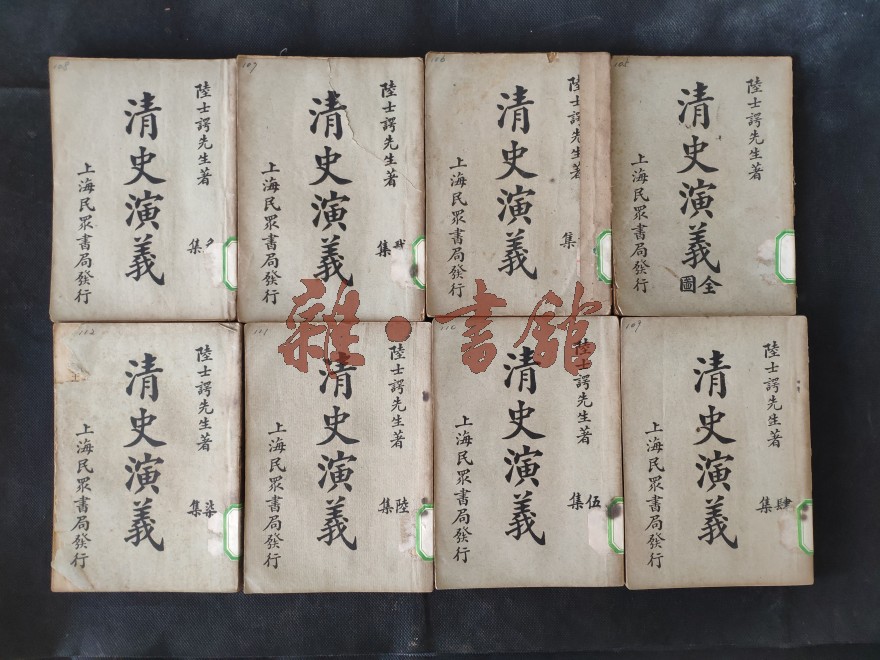 105
陸士諤先生著
清史演義
全圖
上海民眾書局發行
106
陸士諤先生著
清史演義
集
上海民眾書局發行
107
陸士諤先生著
清史演義
集
上海民眾書局發行
108
陸士諤先生著
清史演義
集
上海民眾書局發行
109
陸士諤先生著
清史演義
肆集
上海民眾書局發行
110
陸士諤先生著
清史演義
伍集
上海民眾書局發行
陸士諤先生著
清史演義
陸集
上海民眾書局發行
102
陸士諤先生著
清史演義
柒集
上海民眾書局發行
雜·書館